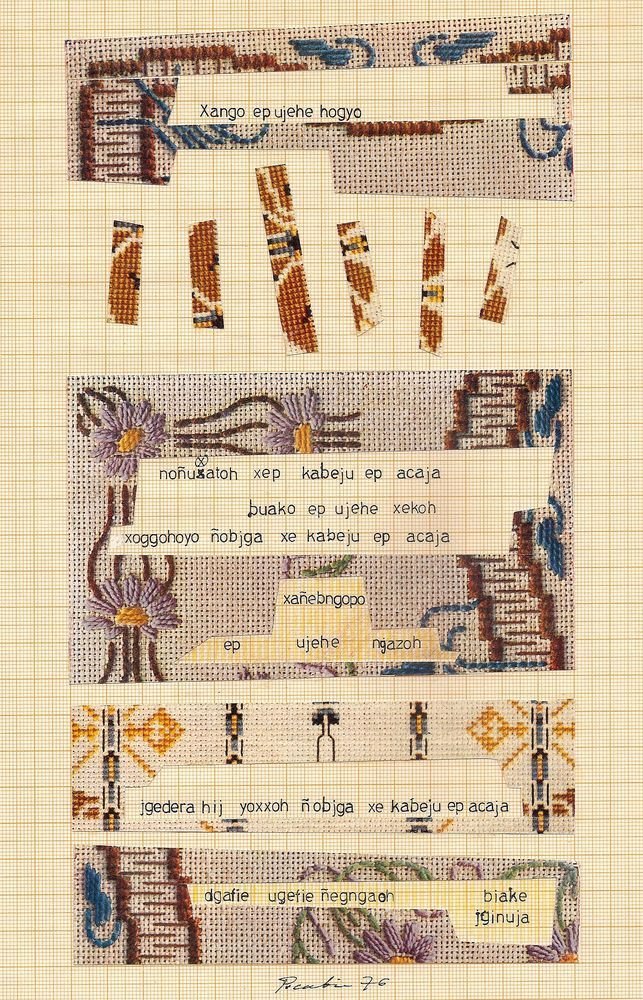 Xango ep ujehe hogyo
noñuxatoh xep kabeju ep acaja
buako ep ujehe xekoh
xoggohoyo ñobjga xe kabeju ep acaja
xañebngopo
ep ujehe ngazoh
jgedera hij yoxxoh ñobjga xe kabeju ep acaja
dgafie ugefie ñegngaoh bjake
jginuja
76